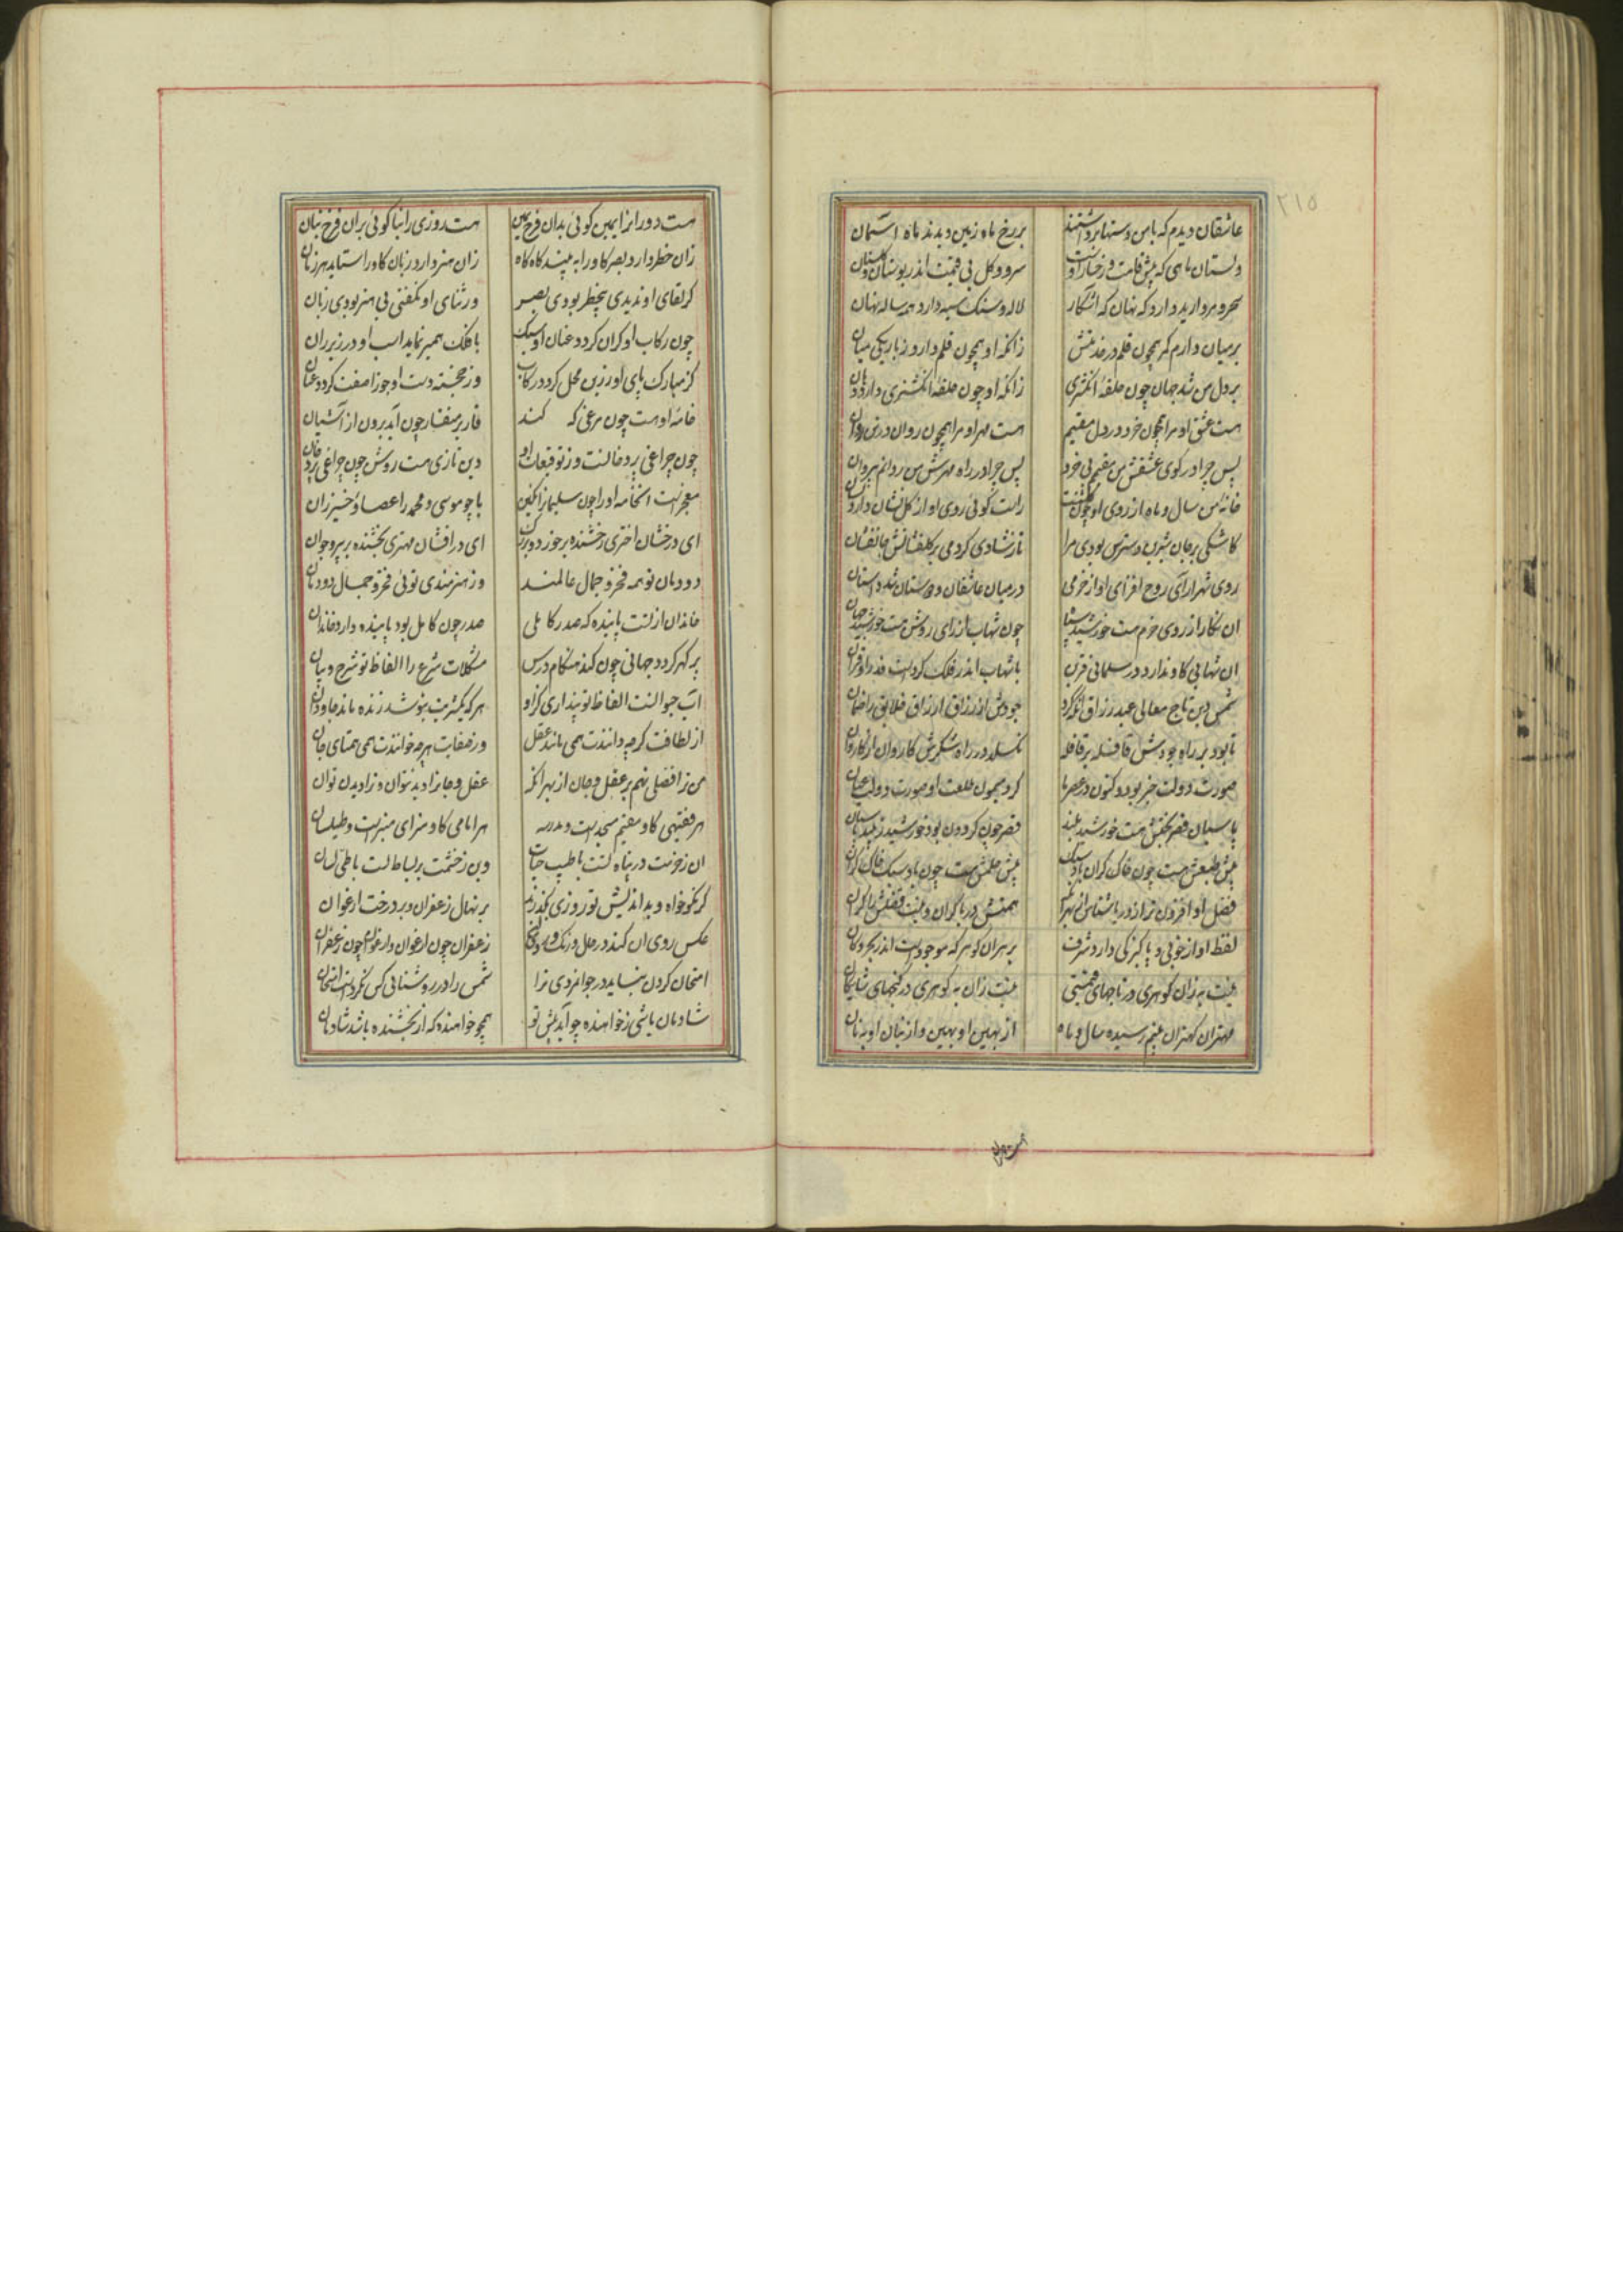 ۲۱۵
عاشقان دیدم که با من دستها برداشتند بر رخ ماه زمین دیدند ماه آسمان
دلستان ماهی که پیش قامت و رخسار اوست سرو و گل بی قیمت اندر بوستان و گلستان
سحر و مروارید دارد که نهان که اشکار لاله و سنک سیه دارد همه ساله نهان
بر میان دارم کمر همچون قلم در خدمتش زانکه او همچون قلم دارد ز باریکی میان
بر دل من شد جهان چون حلقهٔ انکشتری زانکه او چون حلقهٔ انکشتری دارد دهان
هست عشق او مرا همچون خرد در دل مقیم هست مهر او مرا همچون روان در تن روان
پس چرا در کوی عشقش من مقیم بی خرد پس چرا در راه مهرش من روانم بی روان
خانه من سال و ماه از روی او چون راست کوئی روی او از کل نشان دارد
کاشکی بر جان شیرین دسترس بودی مرا تا ز شادی کردمی بر کلفشانش جانفشان
روی شهرارای روح افزای او از خرمی در میان عاشقان و دوستان شد داستان
ان نکار از روی خرم هست خورشید چون شهاب از رای روشن هست خورشید جهان
ان شهابی کاو ندارد در مسلمانی قرین با شهاب اندر فلک کردست قدر او قران
شمس دین تاج معالی عبد رزاق انکه کرد جودش از رزاق ارزاق خلایق را ضمان
تا بود بر راه جودش قافله بر قافله نکسلد در راه شکرش کاروان از کاروان
صورت دولت خبر بود و کنون در عصر ما کرد همچون طلعت او صورت دولت عیان
پاسبان قصر بختش هست خورشید بلند قصر چون کردون بود خورشید زیبد پاسبان
پیش طبعش هست چون خاک کران باد سبک پیش حلمش هست چون باد سبک خاک کران
فضل او افزون تر از دریا شناس همتش دریا کران و نیست فضلش را کران
لفظ او از خوبی و پاکیزکی دارد شرف بر هران کوهر که موجودست اندر بحر و کان
نیست به زان کوهری در تاجهای قیمتی نیست زان به کوهری در کنجهای شایکان
مهتران کهتران بینم رسیده سال و ماه از یمین او بهین و از بنان او به نان
هست روزی را بنا کوئی بران فرخ بنان
زان خطر دارد بصر کاو را به بیند کاه کاه زان هنر دارد زبان کاو را ستاید هر زمان
کر لقای او ندیدی بیخطر بودی بصر ور ثنای او نکفتی بی هنر بودی زبان
چون رکاب او کران کردد عنان او سبک با فلک همبر نماید اسب او در زیر ران
کز مبارک پای او زرین محل کردد رکاب وز خجسته دست او جوزا صفت کردد عنان
خامه او هست چون مرغی که کند قار بر منقار چون آید برون از آشیان
چون چراغی پر دخانست وز توقیعات او دین تازی هست روشن چون چراغی
معجزست انخامه او را چون سلیمان را نکین یا چو موسی و محمد را عصا و خیزران
ای درخشان اختری رخشنده بر ای درافشان مهتری بخشنده بر پیر و جوان
دودمان تو همه فخر و جمال عالمند وز هنرمندی توئی فخر و جمال دودمان
خاندان از تست پاینده که صدر کاملی صدر چون کامل بود پاینده دارد خاندان
پر کهر کردد جهانی چون کند هنکام درس مشکلات شرع را الفاظ تو شرح و بیان
اب حیوانست الفاظ تو پنداری کز او هر که یکشربت بنوشد زنده ماند جاودان
از لطافت کرچه دانندت همی مانند عقل وز صفات ارچه خوانندت همی همتای جان
من ز افضلی نهم بر عقل و جان از بهر انک عقل و جانرا دید نتوان و ترا دیدن توان
هر فقیهی کاو مقیم مسجدست و مدرسه هر امامی کاو سزای منبرست و طیلسان
ان ز خویت در پناه تست با طیب حیات وین ز خشمت بر بساط تست با طی لسان
کر نکوخواه و بداندیش تو روزی بکذرند بر نهال زعفران و بر درخت ارغوان
عکس روی ان کند در حال و رنک روی این زعفران چون ارغوان و ارغوان چون زعفران
امتحان کردن نباید در جوانمردی ترا شمس را در روشنائی کس نکردست امتحان
شادمان باشی ز خواهنده چو آید پیش تو همچو خواهنده که از بخشنده باشد شادمان